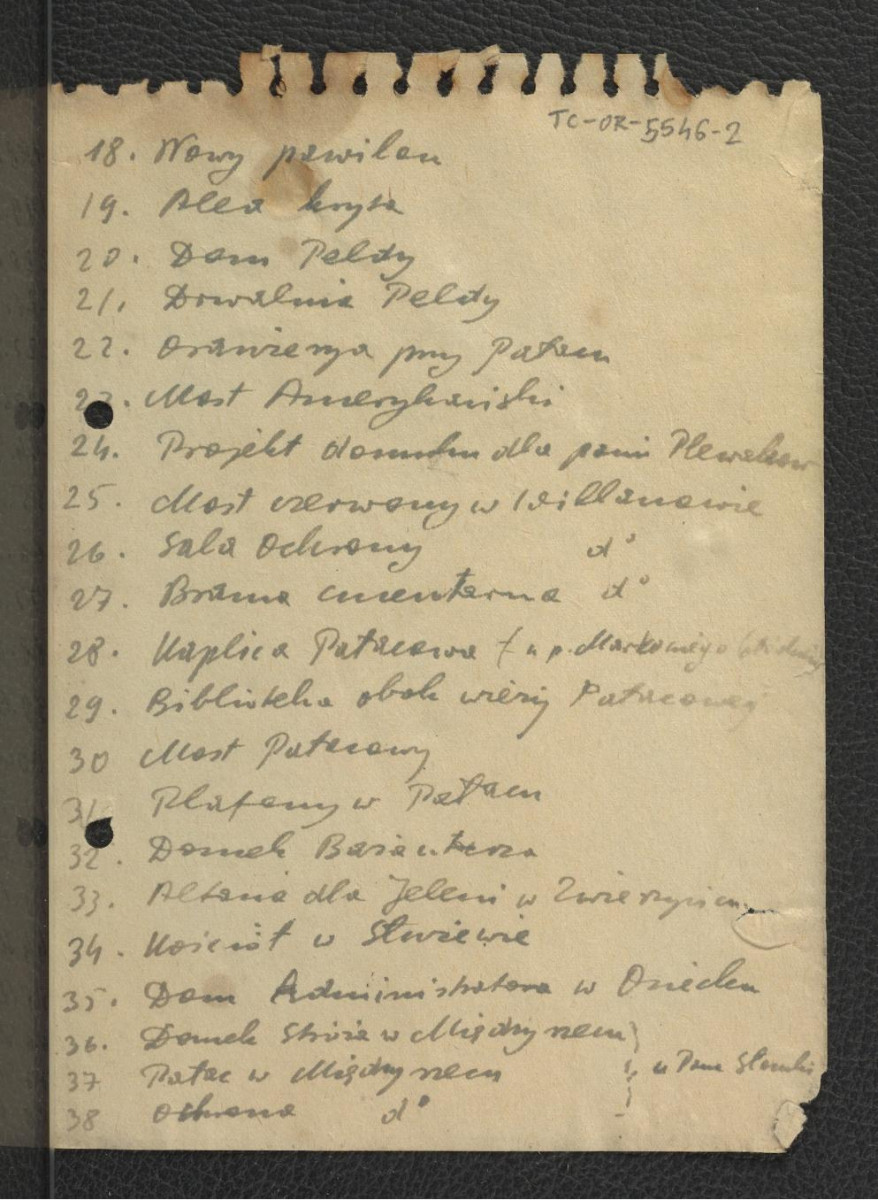 TC-OR-5546-2
18. Nowy pawilon
19. Alea kryta
20. Dom Peldy
21. Drwalnia Peldy
22. Oranżerya przy Pałacu
23. Most Amerykański
24. Projekt domku dla pani
25. Most czerwony w Willanowie
26. Sala Ochrony d°
27. Brama cmentarna d°
28. Kaplica Pałacowa (u p. Markoniego
29. Biblioteka obok wieży Pałacowej
30 Most Pałacowy
31 Plafony w Pałacu
32. Domek Bażantarza
33. Altana dla Jeleni w Zwierzyńcu
34. Kościół w Służewie
35. Dom Administratora w Osiecku
36. Domek Stróża w Międzyrzecu
37 Pałac w Międzyrzecu u Pana
38 Ochrona d°